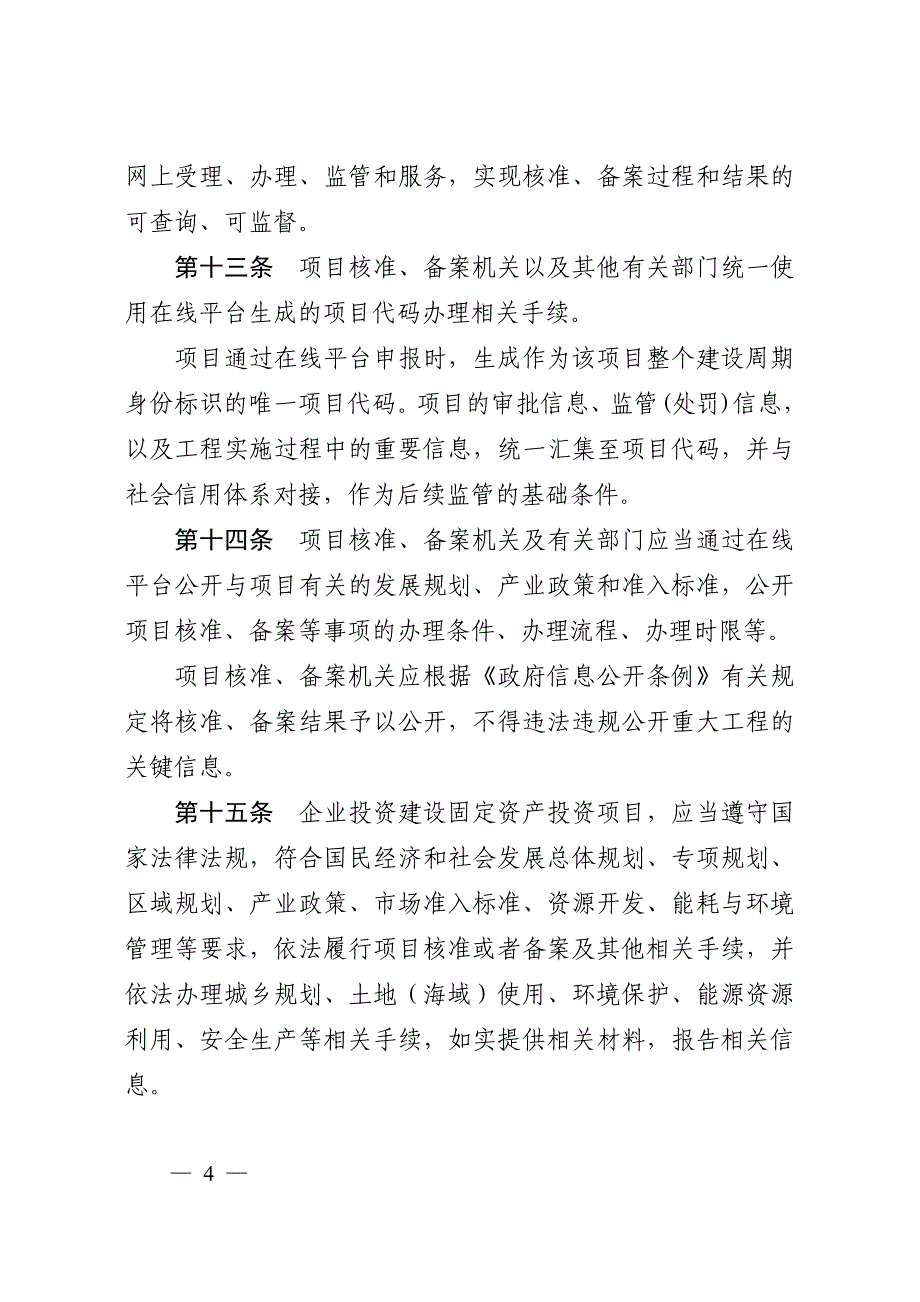 网上受理、办理、监管和服务，实现核准、备案过程和结果的
可查询、可监督。
第十三条　项目核准、备案机关以及其他有关部门统一使
用在线平台生成的项目代码办理相关手续。
项目通过在线平台申报时，生成作为该项目整个建设周期
身份标识的唯一项目代码。项目的审批信息、监管(处罚)信息，
以及工程实施过程中的重要信息，统一汇集至项目代码，并与
社会信用体系对接，作为后续监管的基础条件。
第十四条　项目核准、备案机关及有关部门应当通过在线
平台公开与项目有关的发展规划、产业政策和准入标准，公开
项目核准、备案等事项的办理条件、办理流程、办理时限等。
项目核准、备案机关应根据《政府信息公开条例》有关规
定将核准、备案结果予以公开，不得违法违规公开重大工程的
关键信息。
第十五条　企业投资建设固定资产投资项目，应当遵守国
家法律法规，符合国民经济和社会发展总体规划、专项规划、
区域规划、产业政策、市场准入标准、资源开发、能耗与环境
管理等要求，依法履行项目核准或者备案及其他相关手续，并
依法办理城乡规划、土地（海域）使用、环境保护、能源资源
利用、安全生产等相关手续，如实提供相关材料，报告相关信
息。
— 4 —